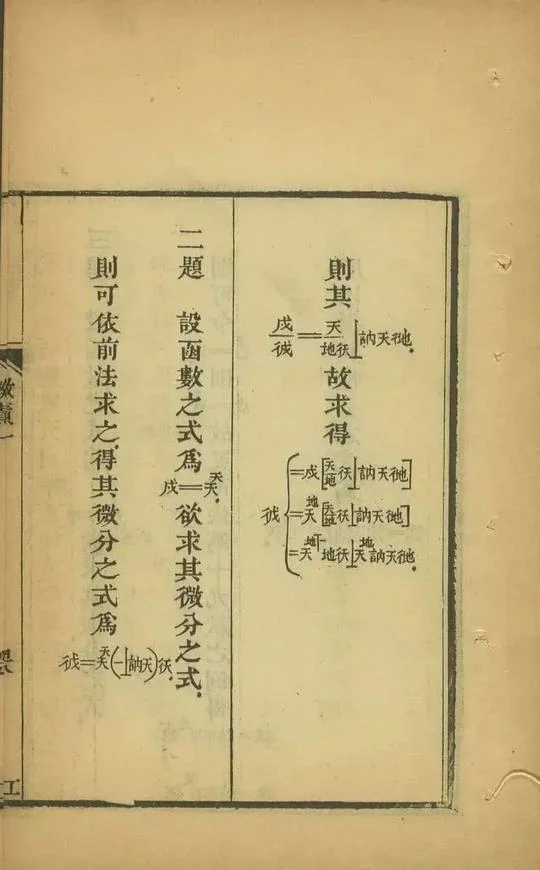 則其 戌/彳戌=天/地彳天⊥訥天彳地. 故求得 彳戌{
=戌[天/地彳天⊥訥天彳地]
=天^地[天/地彳天⊥訥天彳地]
=天^(地丅一)地彳天⊥天^地訥天彳地.
二題　設函數之式爲 戌=天^天. 欲求其微分之式.
則可依前法求之.得其微分之式爲 彳戌=天^天(一⊥訥天)彳天.